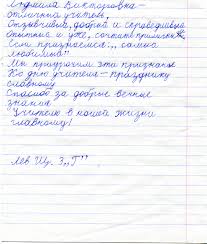 Людмила Викторовна -
отличный учитель,
Отзывчивый, добрый и справедливый
опытный и уже, считайте
Если признаемся: „самый
любимый"
Мы приурочим эти признанья
Ко дню учителя - празднику
славному
Спасибо за добрые вечные
знания
Учителю в нашей жизни
главному!
Лев Щ. 3 „Г"